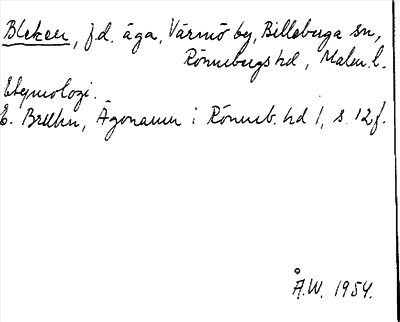 Bleken, f.d. äga, Värmö by, Billeberga sn,
Rönnebergs hd, Malm. l.
Etymologi.
E. Brehm, Ägonamn i Rönneb. hd 1, s. 12 f.
Å.W. 1954.